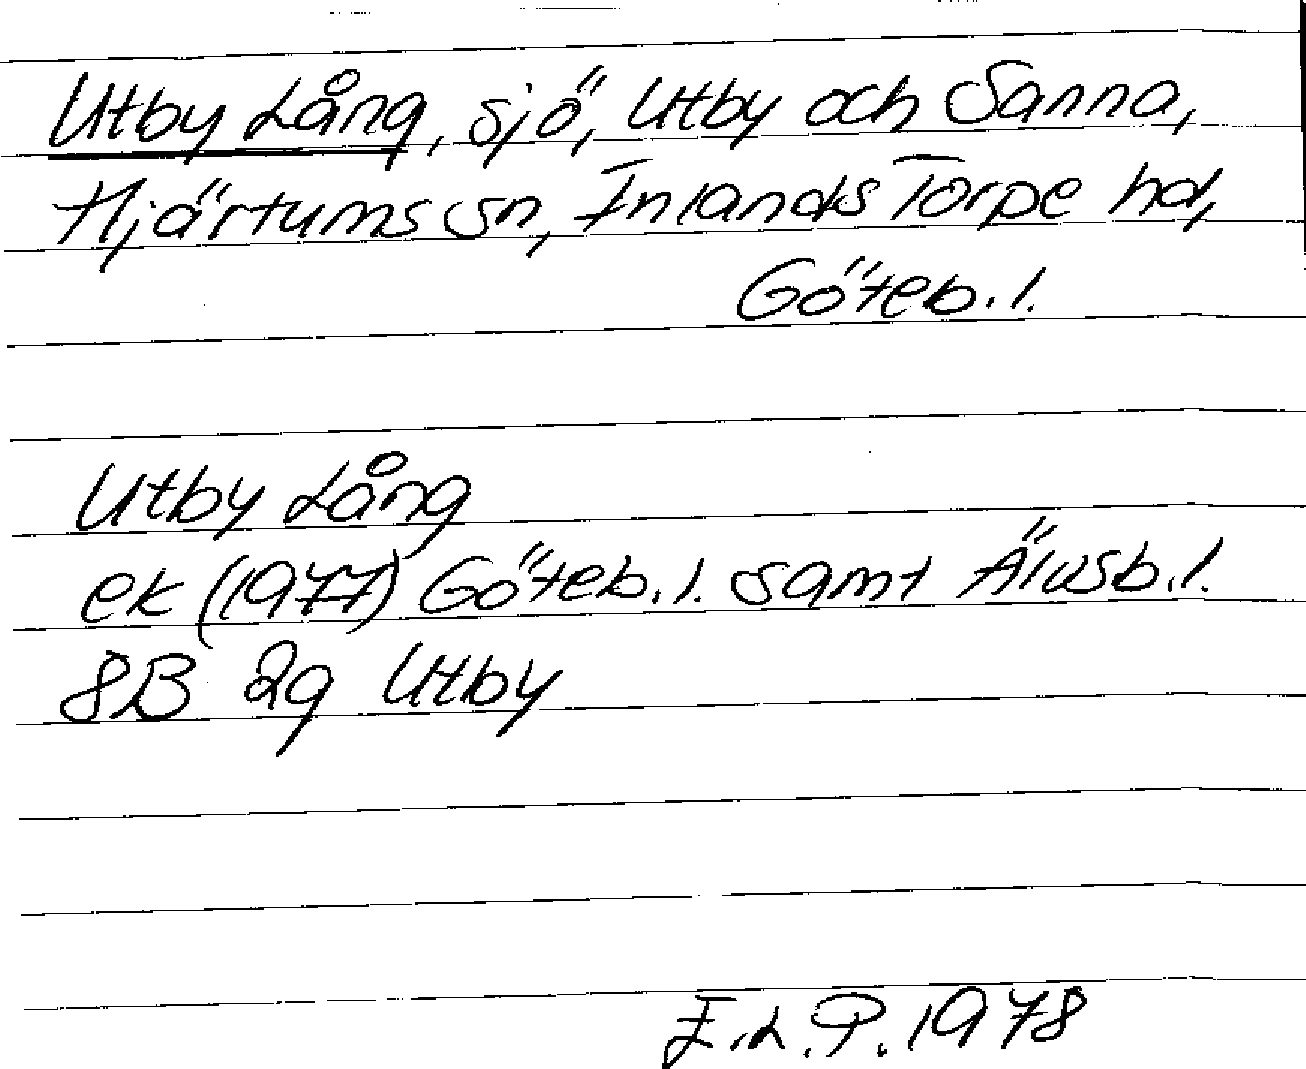 Utby Lång, sjö, Utby och Sanna,
Hjärtums sn, Inlands Torpe hd,
Göteb. l.
Utby Lång
ek (1977) Göteb. l. samt Älvsb. l.
8B 2g Utby
I. L. P. 1978